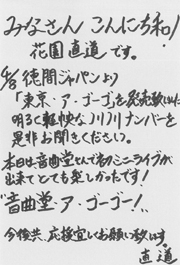 みなさん こんにち和!
花園直道です。
4/8 徳間ジャパンより
「東京・ア・ゴーゴ」を発売致しました
明るく軽快なノリノリナンバーを
是非お聞きください。
本日は音曲堂さんで初ミニライブが
出来てとても楽しかったです!
"音曲堂・ア・ゴーゴー!"
今後共、応援宜しくお願い致します。
直道